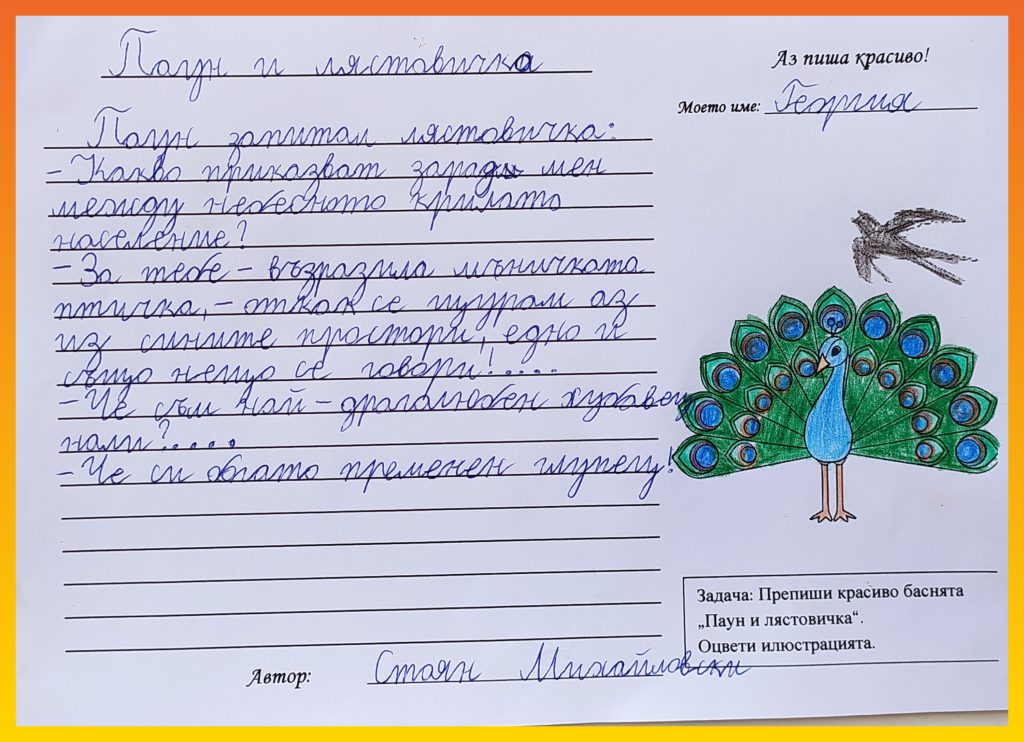 Паун и лястовичка
Аз пиша красиво!
Моето име: Георгия
Паун запитал лястовичка:
– Какво приказват заради мен
между небесното крилато
население?
– За тебе – възразила мъничката
птичка, – откак се щурам аз
из сините простори, едно и
също нещо се говори!....
– Че съм най – драголюбен хубавец,
нали?....
– Че си богато пременен глупец!
Задача: Препиши красиво баснята
„Паун и лястовичка“.
Оцвети илюстрацията.
Автор: Стоян Михайловски